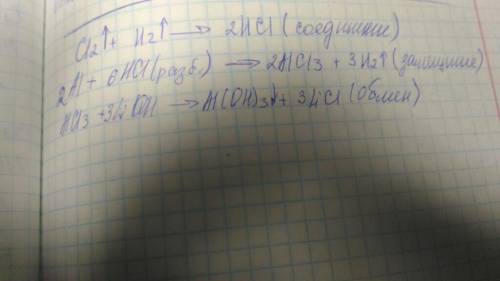 Cl2↑ + H2↑ → 2HCl (соединение)
2Al + 6HCl (разб.) → 2AlCl3 + 3H2↑ (замещение)
AlCl3 + 3LiOH → Al(OH)3↓ + 3LiCl (обмен)